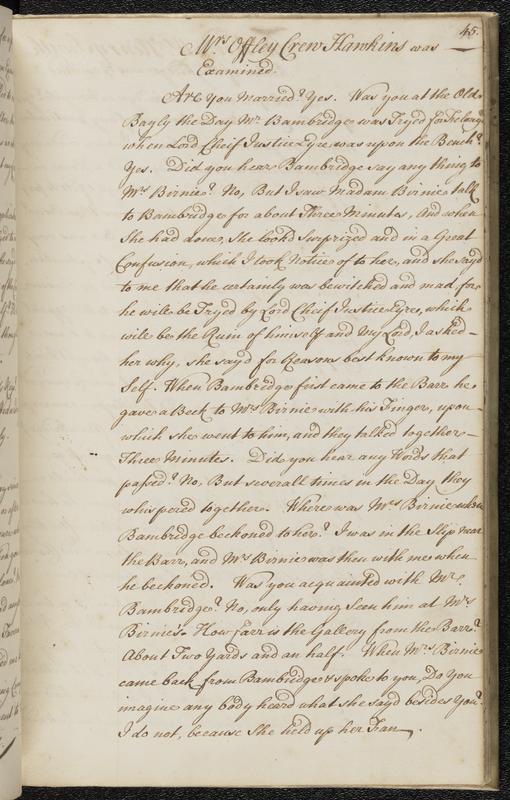 45.
Mrs Offley Crew Hawkins was
Examined.
Are you Married? Yes. Was you at the Old
Bayly the Day Mr. Bambridge was Tryed for
when Lord Cheif Justice Eyre, was upon the Bench?
Yes. Did you hear Bambridge say any thing to
Mrs Birnie? No, But I saw Madam Birnie talk
to Bambridge for about Three Minutes, And when
She had done, She look'd Surprized and in a Great
Confusion, which I took Notice of to her, and she say'd
to me that he certainly was bewitched and mad, for
he will be Tryed by Lord Cheif Justice Eyre, which
will be the Ruin of himself and My Lord, I asked
her why, she say'd for Reasons best known to my
Self. When Bambridge first came to the Barr he
gave a Beck to Mrs Birnie with his Finger, upon
which she went to him, and they talked together
Three Minutes. Did you hear any Words that
passed? No, But severall times in the Day they
whispered together. Where was Mrs Birnie when
Bambridge beckoned to her? I was in the Slip near
the Barr, and Mrs Birnie was then with me when
he beckoned. Was you acquainted with Mr.
Bambridge? No, only having Seen him at Mrs
Birnie's. How farr is the Gallery from the Barr?
About Two Yards and an half. When Mrs Birnie
came back from Bambridge & spoke to you, Do You
imagine any body heard what she say'd besides You?
I do not, because She held up her Fan.